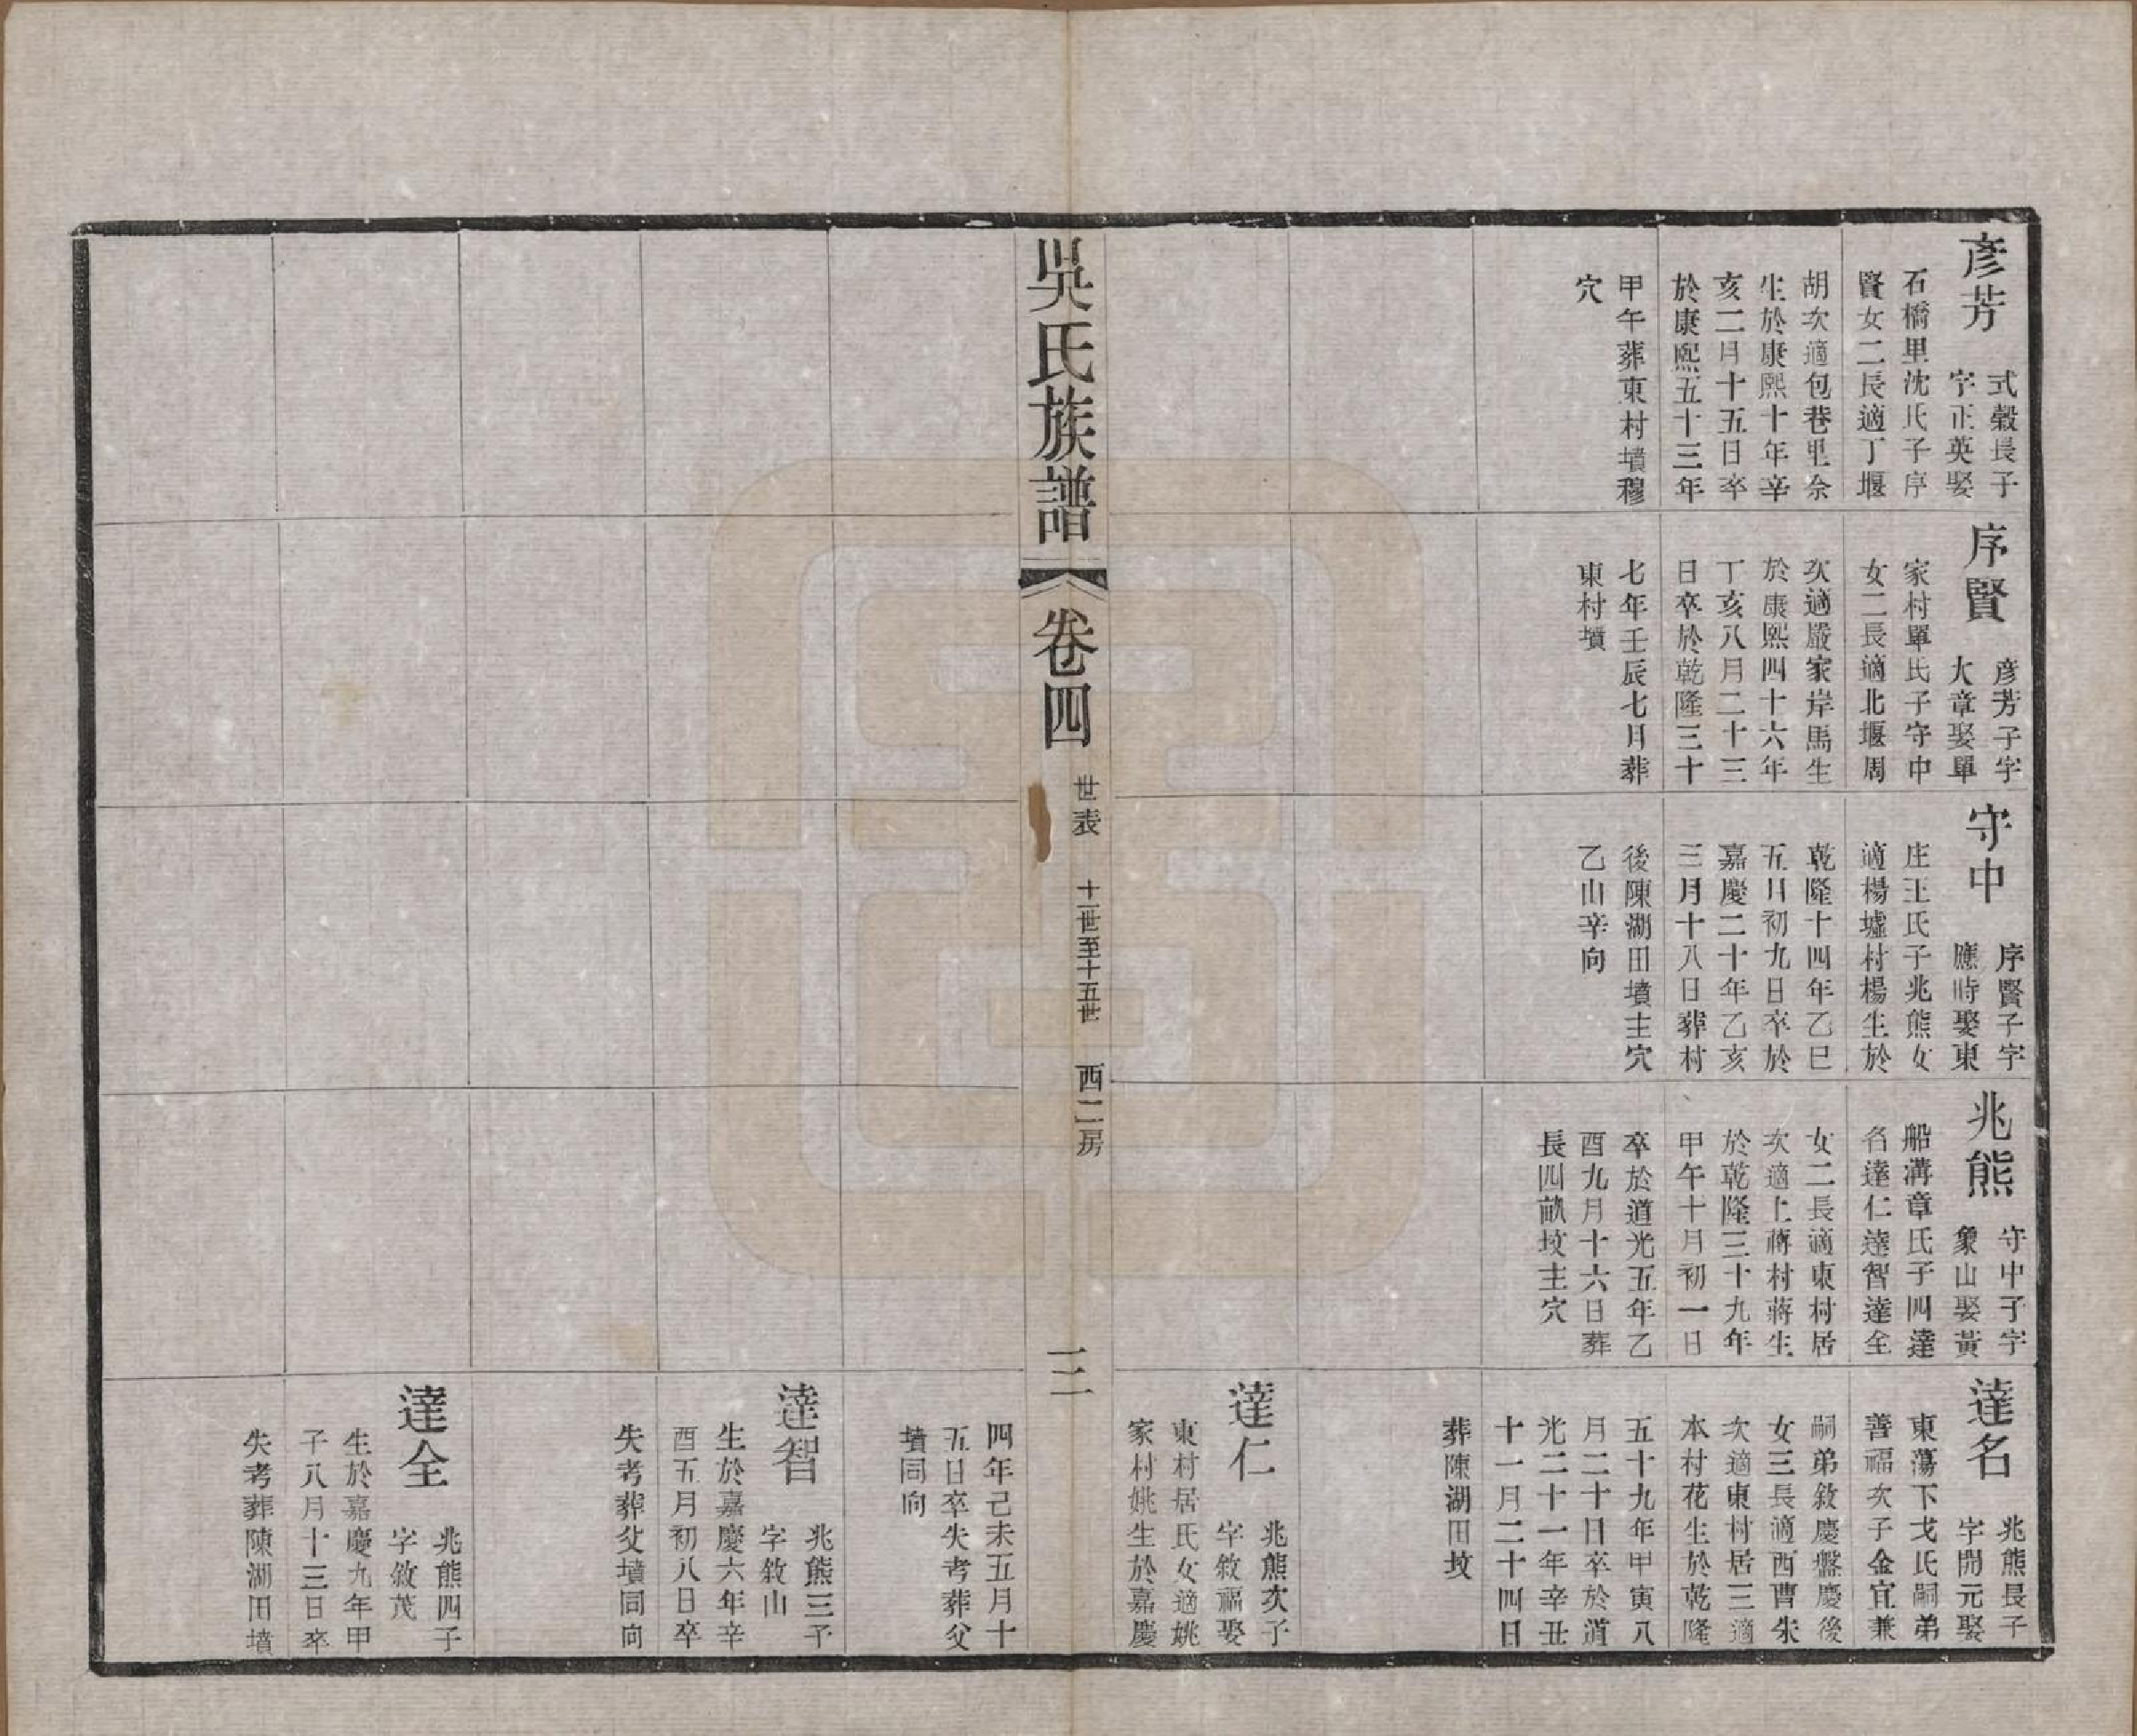 彥芳
式穀長子
字正英娶
石橋里沈氏子序
賢女二長適丁堰
胡次適包巷里佘
生於康熙十年辛
亥二月十五日卒
於康熙五十三年
甲午葬東村墳穆
穴
序賢
彥芳子字
大章娶單
家村單氏子守中
女二長適北堰周
次適嚴家岸馬生
於康熙四十六年
丁亥八月二十三
日卒於乾隆三十
七年壬辰七月葬
東村墳
守中
序賢子字
應時娶東
庄王氏子兆熊女
適楊墟村楊生於
乾隆十四年乙巳
五月初九日卒於
嘉慶二十年乙亥
三月十八日葬村
後陳湖田墳主穴
乙山辛向
兆熊
守中子字
象山娶黃
船溝章氏子四達
名達仁達智達全
女二長適東村居
次適上蔣村蔣生
於乾隆三十九年
甲午十月初一日
卒於道光五年乙
酉九月十六日葬
長四畝坟主穴
達名
兆熊長子
字開元娶
東蕩下戈氏嗣弟
善福次子金宜兼
嗣弟敘慶盤慶後
女三長適西曹朱
次適東村居三適
本村花生於乾隆
五十九年甲寅八
月二十日卒於道
光二十一年辛丑
十一月二十四日
葬陳湖田坟
達仁
兆熊次子
字敘福娶
東村居氏女適姚
家村姚生於嘉慶
吳氏族譜
卷四
世表
十一世至十五世
西二房
三
四年己未五月十
五日卒失考葬父
墳同向
達智
兆熊三子
字敘山
生於嘉慶六年辛
酉五月初八日卒
失考葬父墳同向
達全
兆熊四子
字敘茂
生於嘉慶九年甲
子八月十三日卒
失考葬陳湖田墳